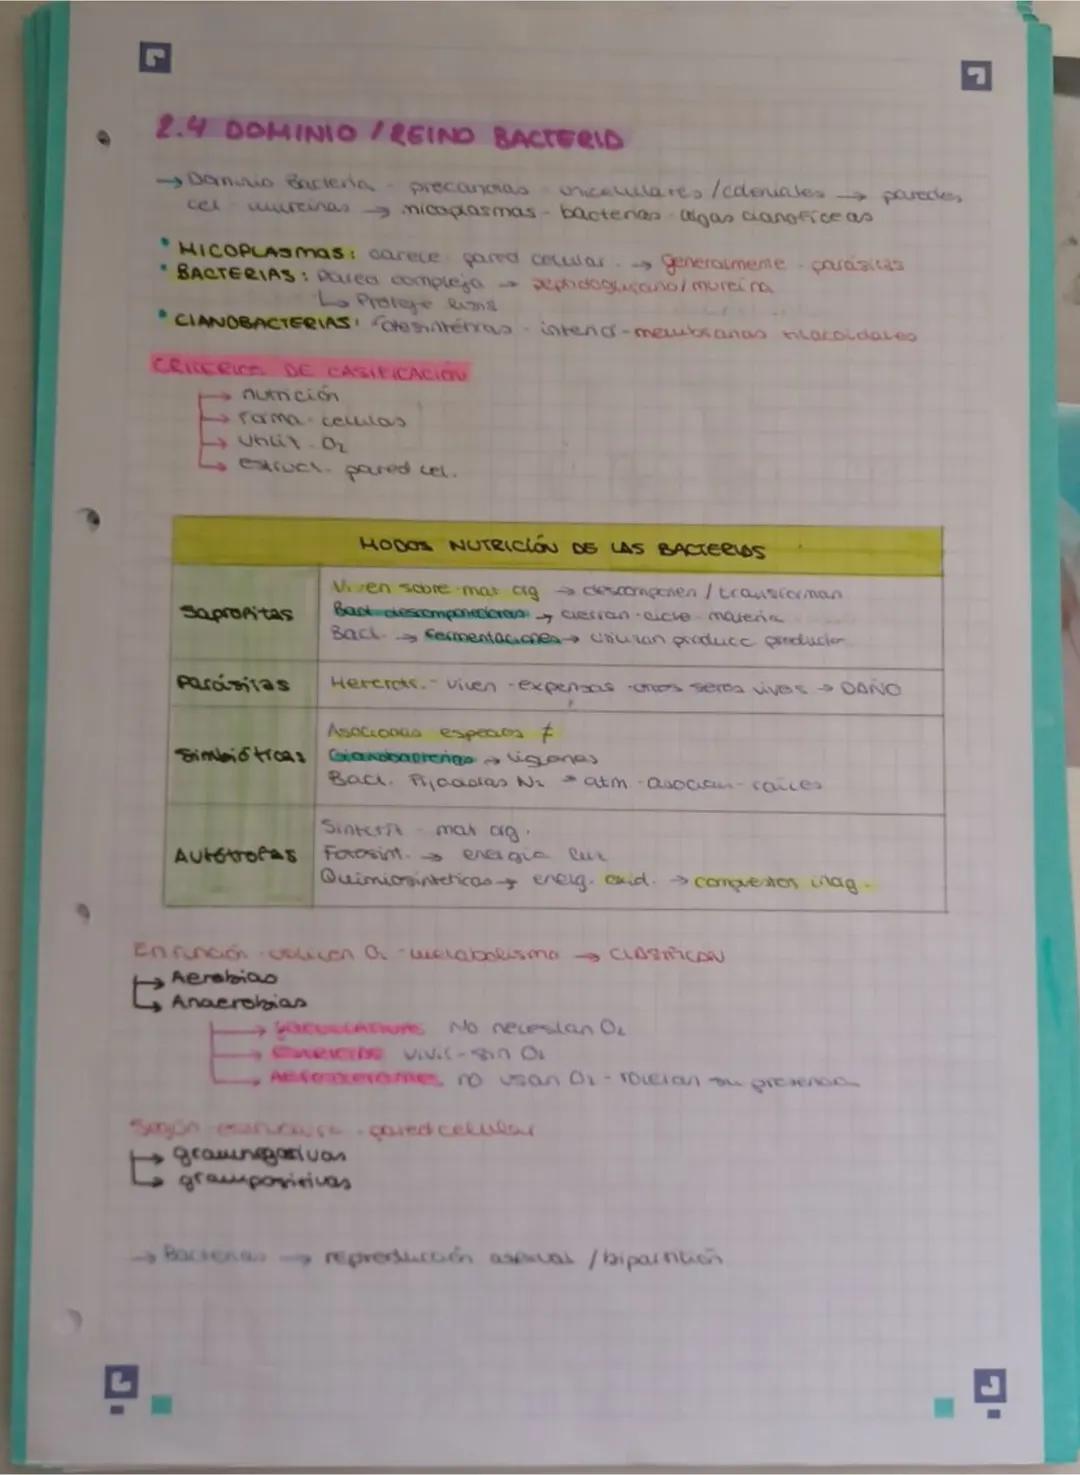 2.4 DOMINIO / REINO BACTERIA
→ Dominio Bacteria - procariotas - unicelulares / coloniales → paredes
cel - mureinas → micoplasmas - bacterias - algas cianofíceas
• MICOPLASMAS: carece pared celular. → generalmente - parásitas
• BACTERIAS: Pared compleja → peptidoglucano/mureína
↳ Protege lisis
• CIANOBACTERIAS: fotosintéticas - interior - membranas tilacoidales
CRITERIOS DE CASIFICACIÓN
→ nutrición
→ forma - celulas
→ utiliz - O2
→ estruct. pared cel.
MODOS NUTRICIÓN DE LAS BACTERIAS
Saprofitas
Viven sobre mat org → descomponen / transforman
Bact descomponedoras → cierran - ciclo - materia
Bact. → fermentaciones → utilizan producc producto
Parásitas
Heterot. - viven - expensas - otros seres vivos → DAÑO
Simbióticas
Asociadas especies ≠
Cianobacterias → líquenes
Bact. Fijadoras N2 → atm - asocian - raíces
Autótrofas
Sintetiz - mat org.
Fotosint. → energía luz
Quimiosintéticas → energ. oxid. → compuestos inog.
En función - utilicen O2 - metabolismo → CLASIFICAN
→ Aerobias
→ Anaerobias
→ No necesitan O2
→ vivir - sin O2
→ no usan O2 - toleran su presencia
Según estructura - pared celular
→ gramnegativas
→ grampositivas
→ Bacterias → reproducción asexual / bipartición